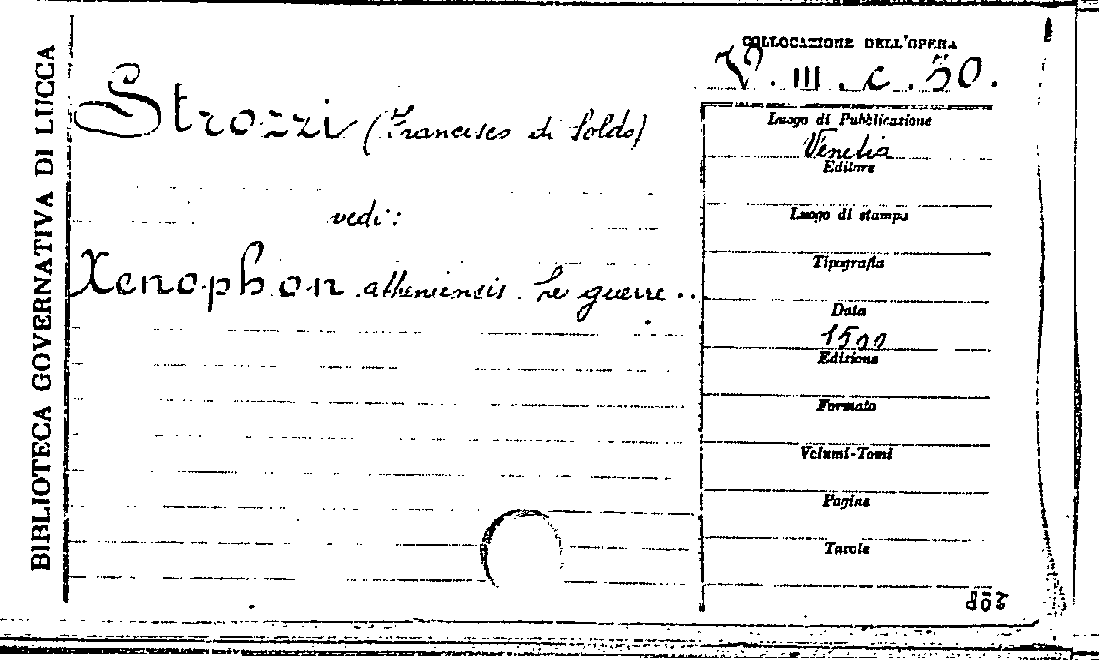 BIBLIOTECA GOVERNATIVA DI LUCCA
COLLOCAZIONE DELL'OPERA
V. III. c. 50.
Strozzi (Francesco di Soldo)
Luogo di Pubblicazione
Venetia
Editore
vedi:
Luogo di stampa
Tipografia
Xenophon atheniensis. Le guerre..
Data
1500
Edizione
Formato
Volumi-Tomi
Pagine
Tavole